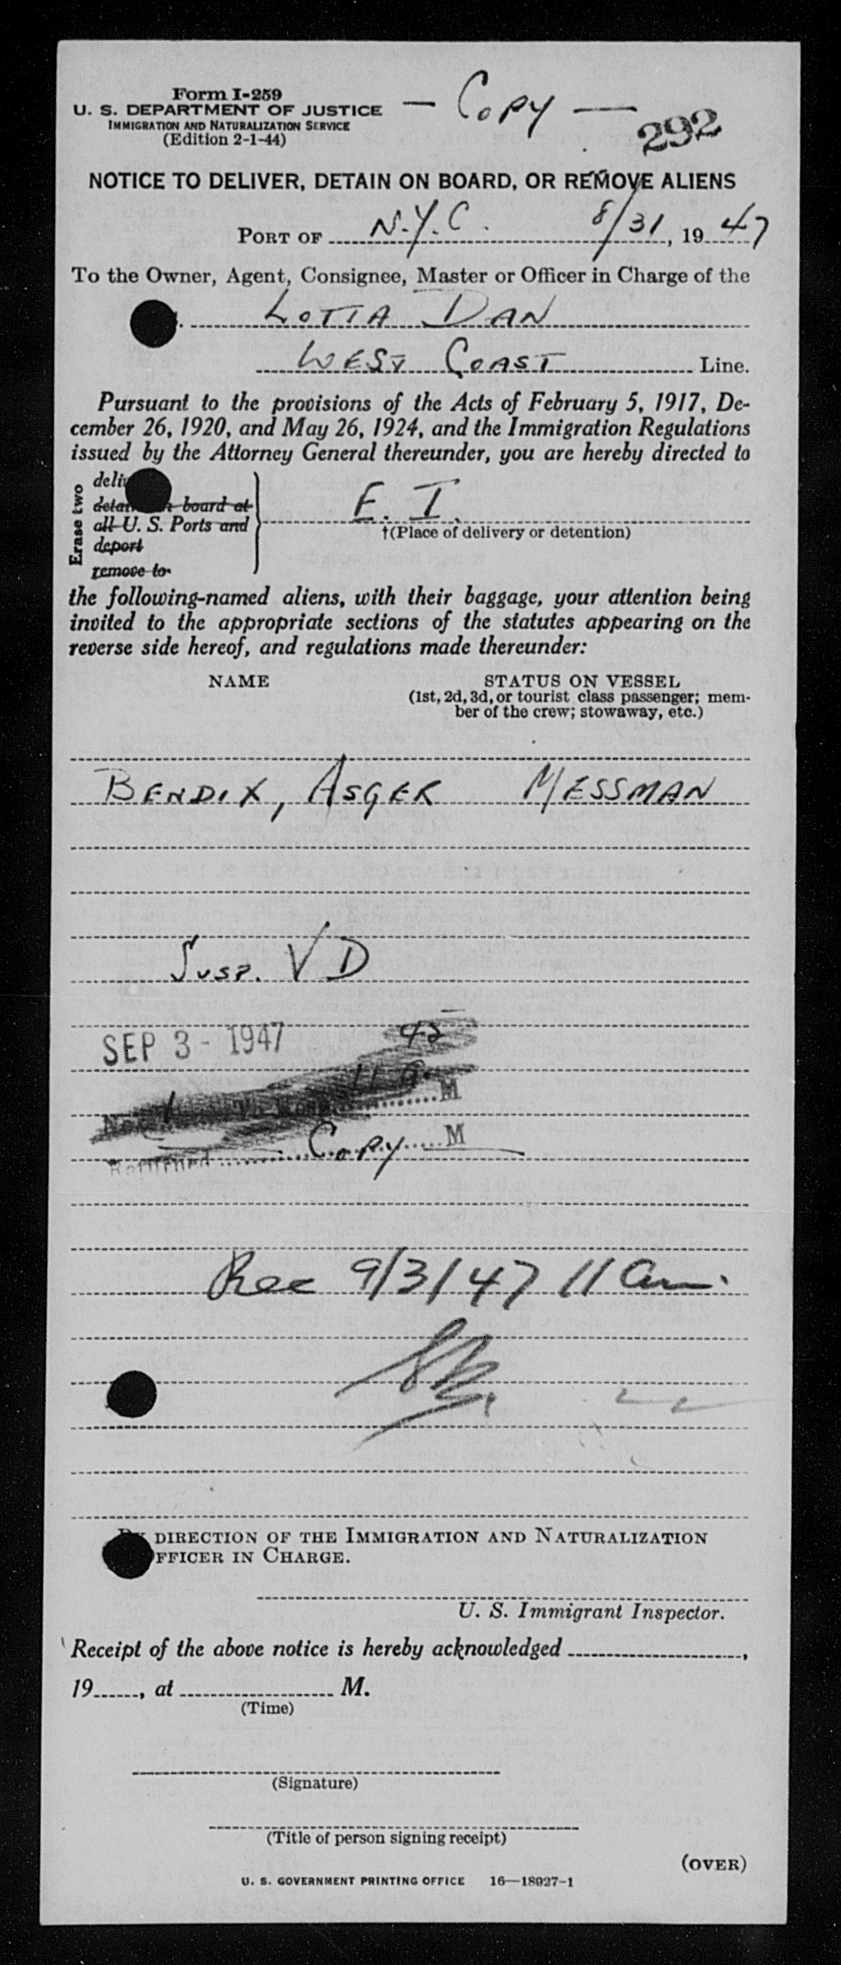 Form I-259
U. S. DEPARTMENT OF JUSTICE
IMMIGRATION AND NATURALIZATION SERVICE
(Edition 2-1-44)
— COPY —
292
NOTICE TO DELIVER, DETAIN ON BOARD, OR REMOVE ALIENS
PORT OF N.Y.C. 8/31, 1947
To the Owner, Agent, Consignee, Master or Officer in Charge of the
LOTTA DAN
WEST COAST Line.
Pursuant to the provisions of the Acts of February 5, 1917, De-
cember 26, 1920, and May 26, 1924, and the Immigration Regulations
issued by the Attorney General thereunder, you are hereby directed to
Erase two
board at
all U. S. Ports and
deport
remove to
E. I.
†(Place of delivery or detention)
the following-named aliens, with their baggage, your attention being
invited to the appropriate sections of the statutes appearing on the
reverse side hereof, and regulations made thereunder:
NAME STATUS ON VESSEL
(1st, 2d, 3d, or tourist class passenger; mem-
ber of the crew; stowaway, etc.)
BENDIX, ASGER MESSMAN
SUSP. VD
SEP 3 - 1947 42
11 a. M
Returned Copy M
Rec 9/3/47 11 am.
DIRECTION OF THE IMMIGRATION AND NATURALIZATION
OFFICER IN CHARGE.
U. S. Immigrant Inspector.
Receipt of the above notice is hereby acknowledged ,
19 , at M.
(Time)
(Signature)
(Title of person signing receipt)
(OVER)
U. S. GOVERNMENT PRINTING OFFICE 16—18027-1